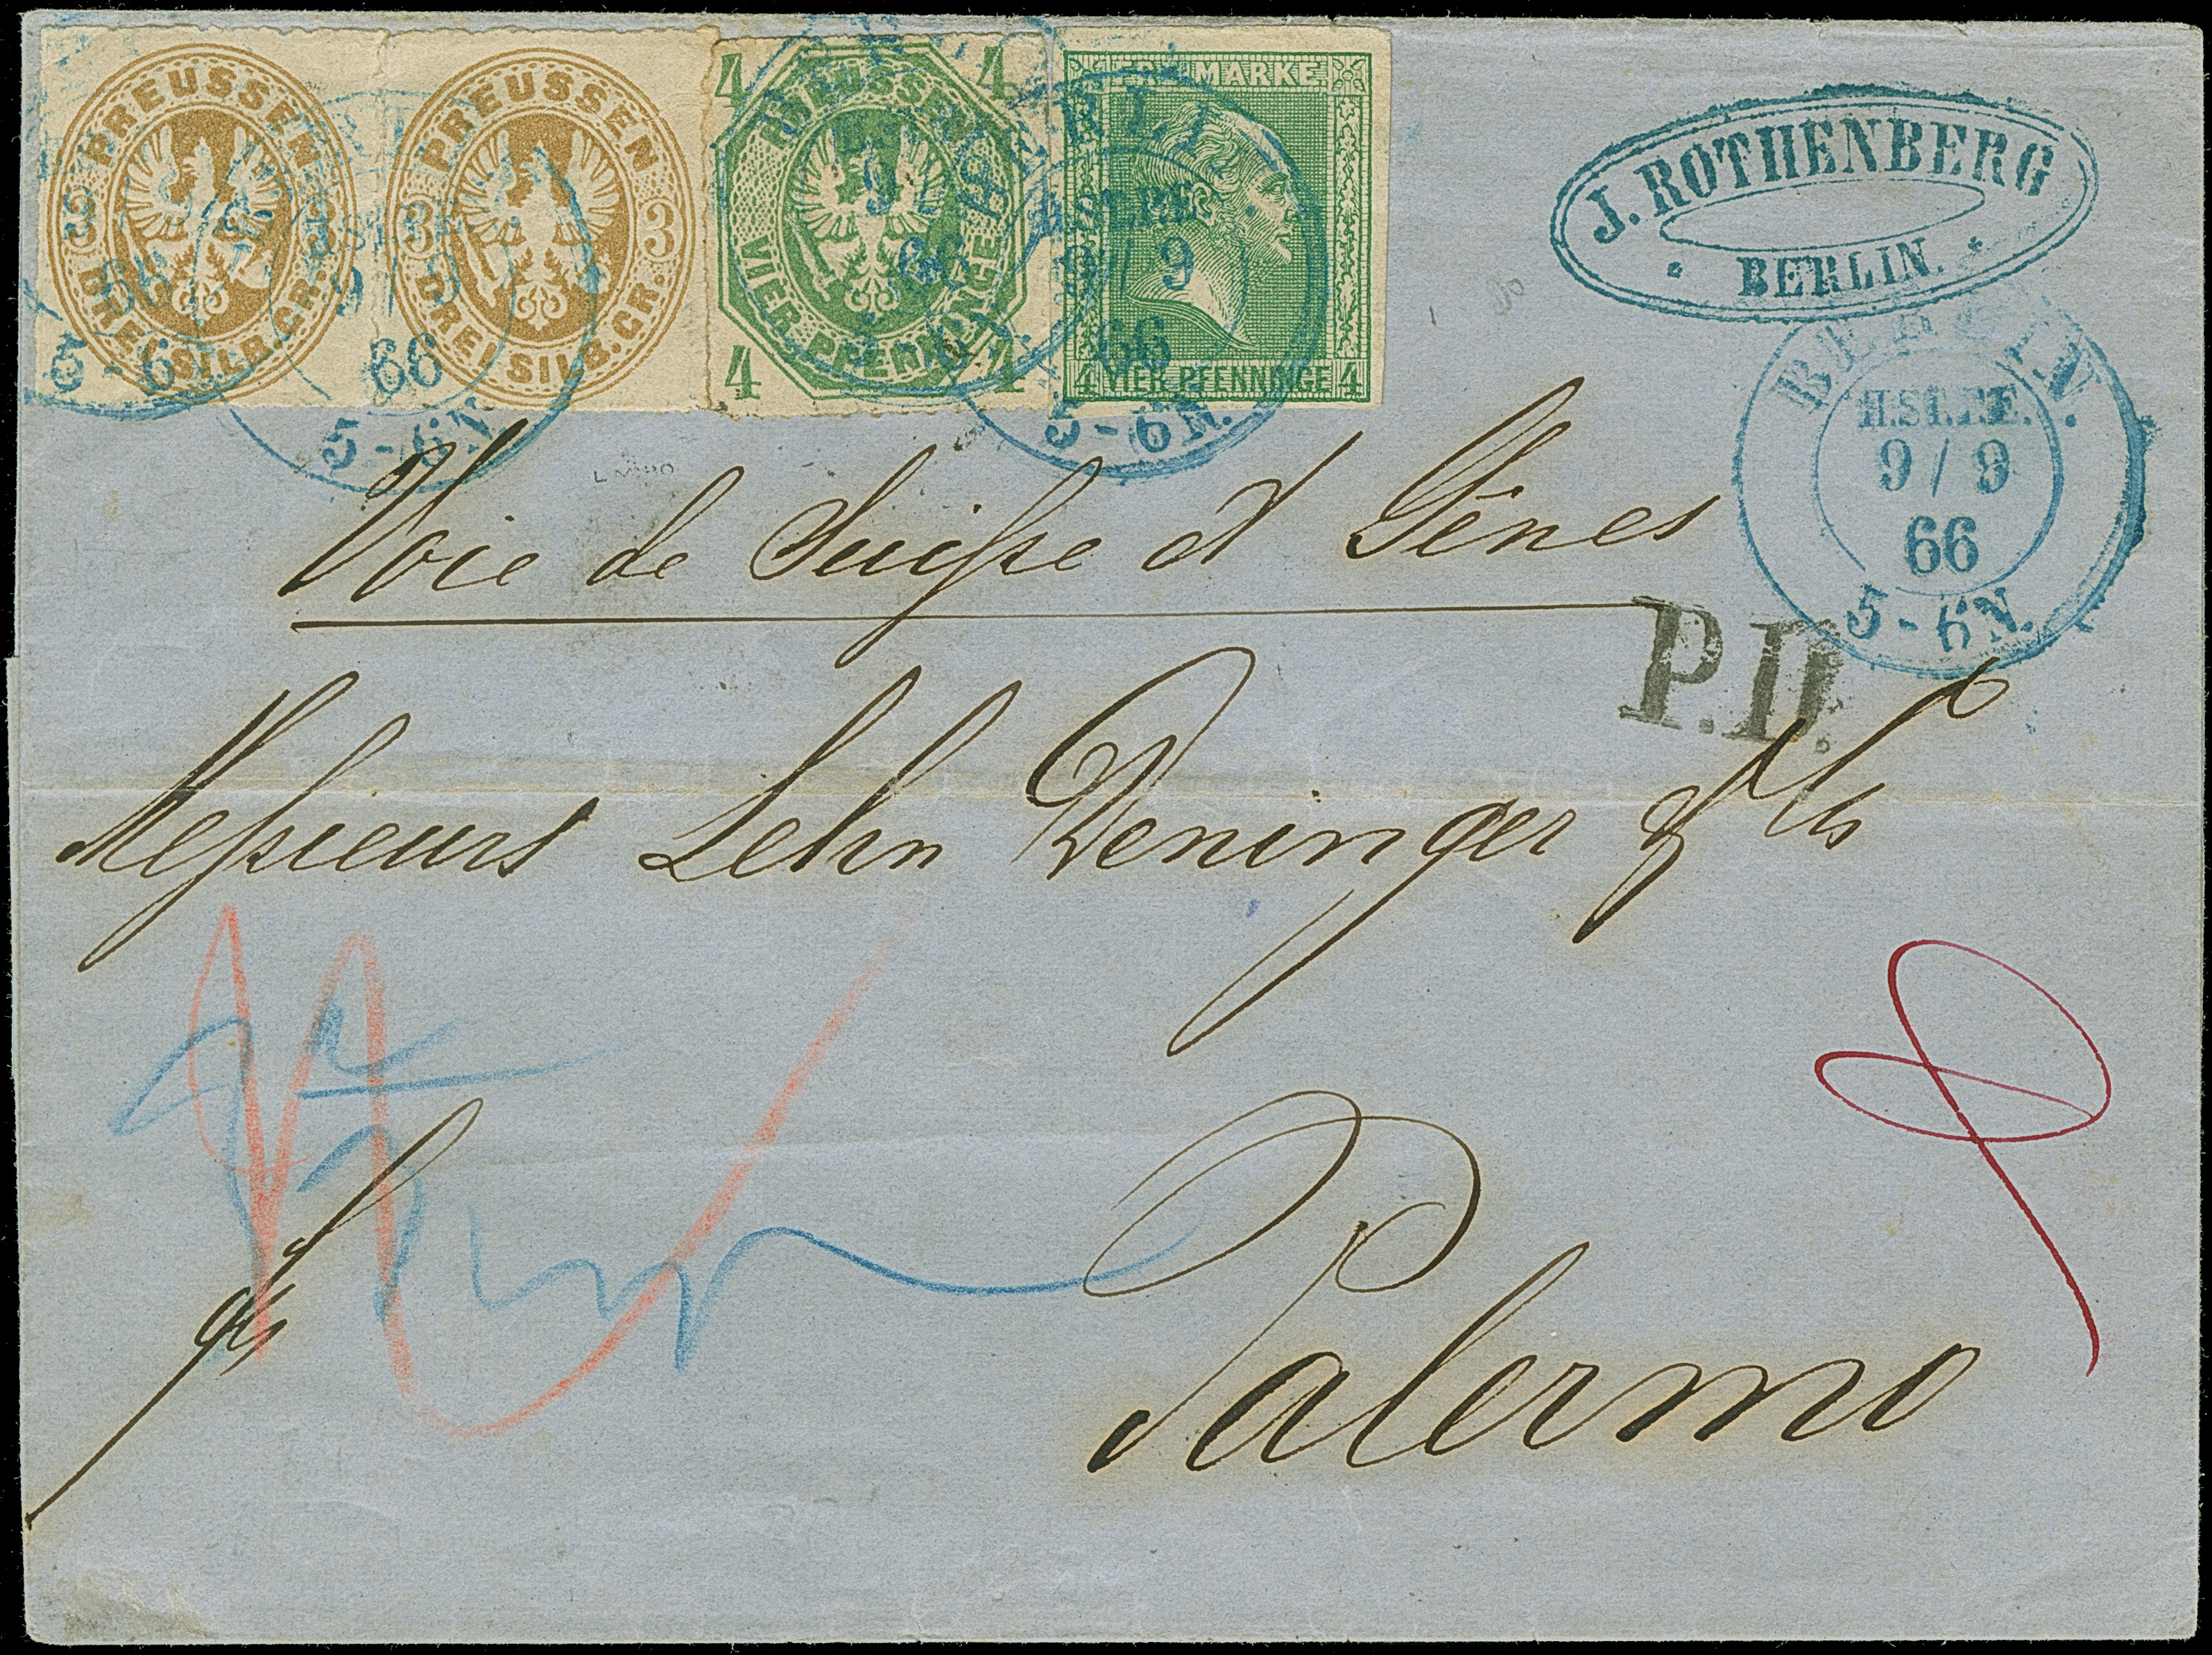 PREUSSEN
3 3
DREI SILB.GR.
PREUSSEN
3 3
DREI SILB.GR.
4 4
PREUSSEN
VIER PFENNINGE
4 4
FREIMARKE
4 VIER PFENNINGE 4
66
5-6
66
5-6N.
9/
66
BERLIN
H.ST.P.E.
9/9
66
5-6N.
J. ROTHENBERG
BERLIN.
BERLIN
H.ST.P.E.
9/9
66
5-6N.
Voie de Suisse et Gênes
P.D.
Messieurs Lehn Deninger & Co
Palermo